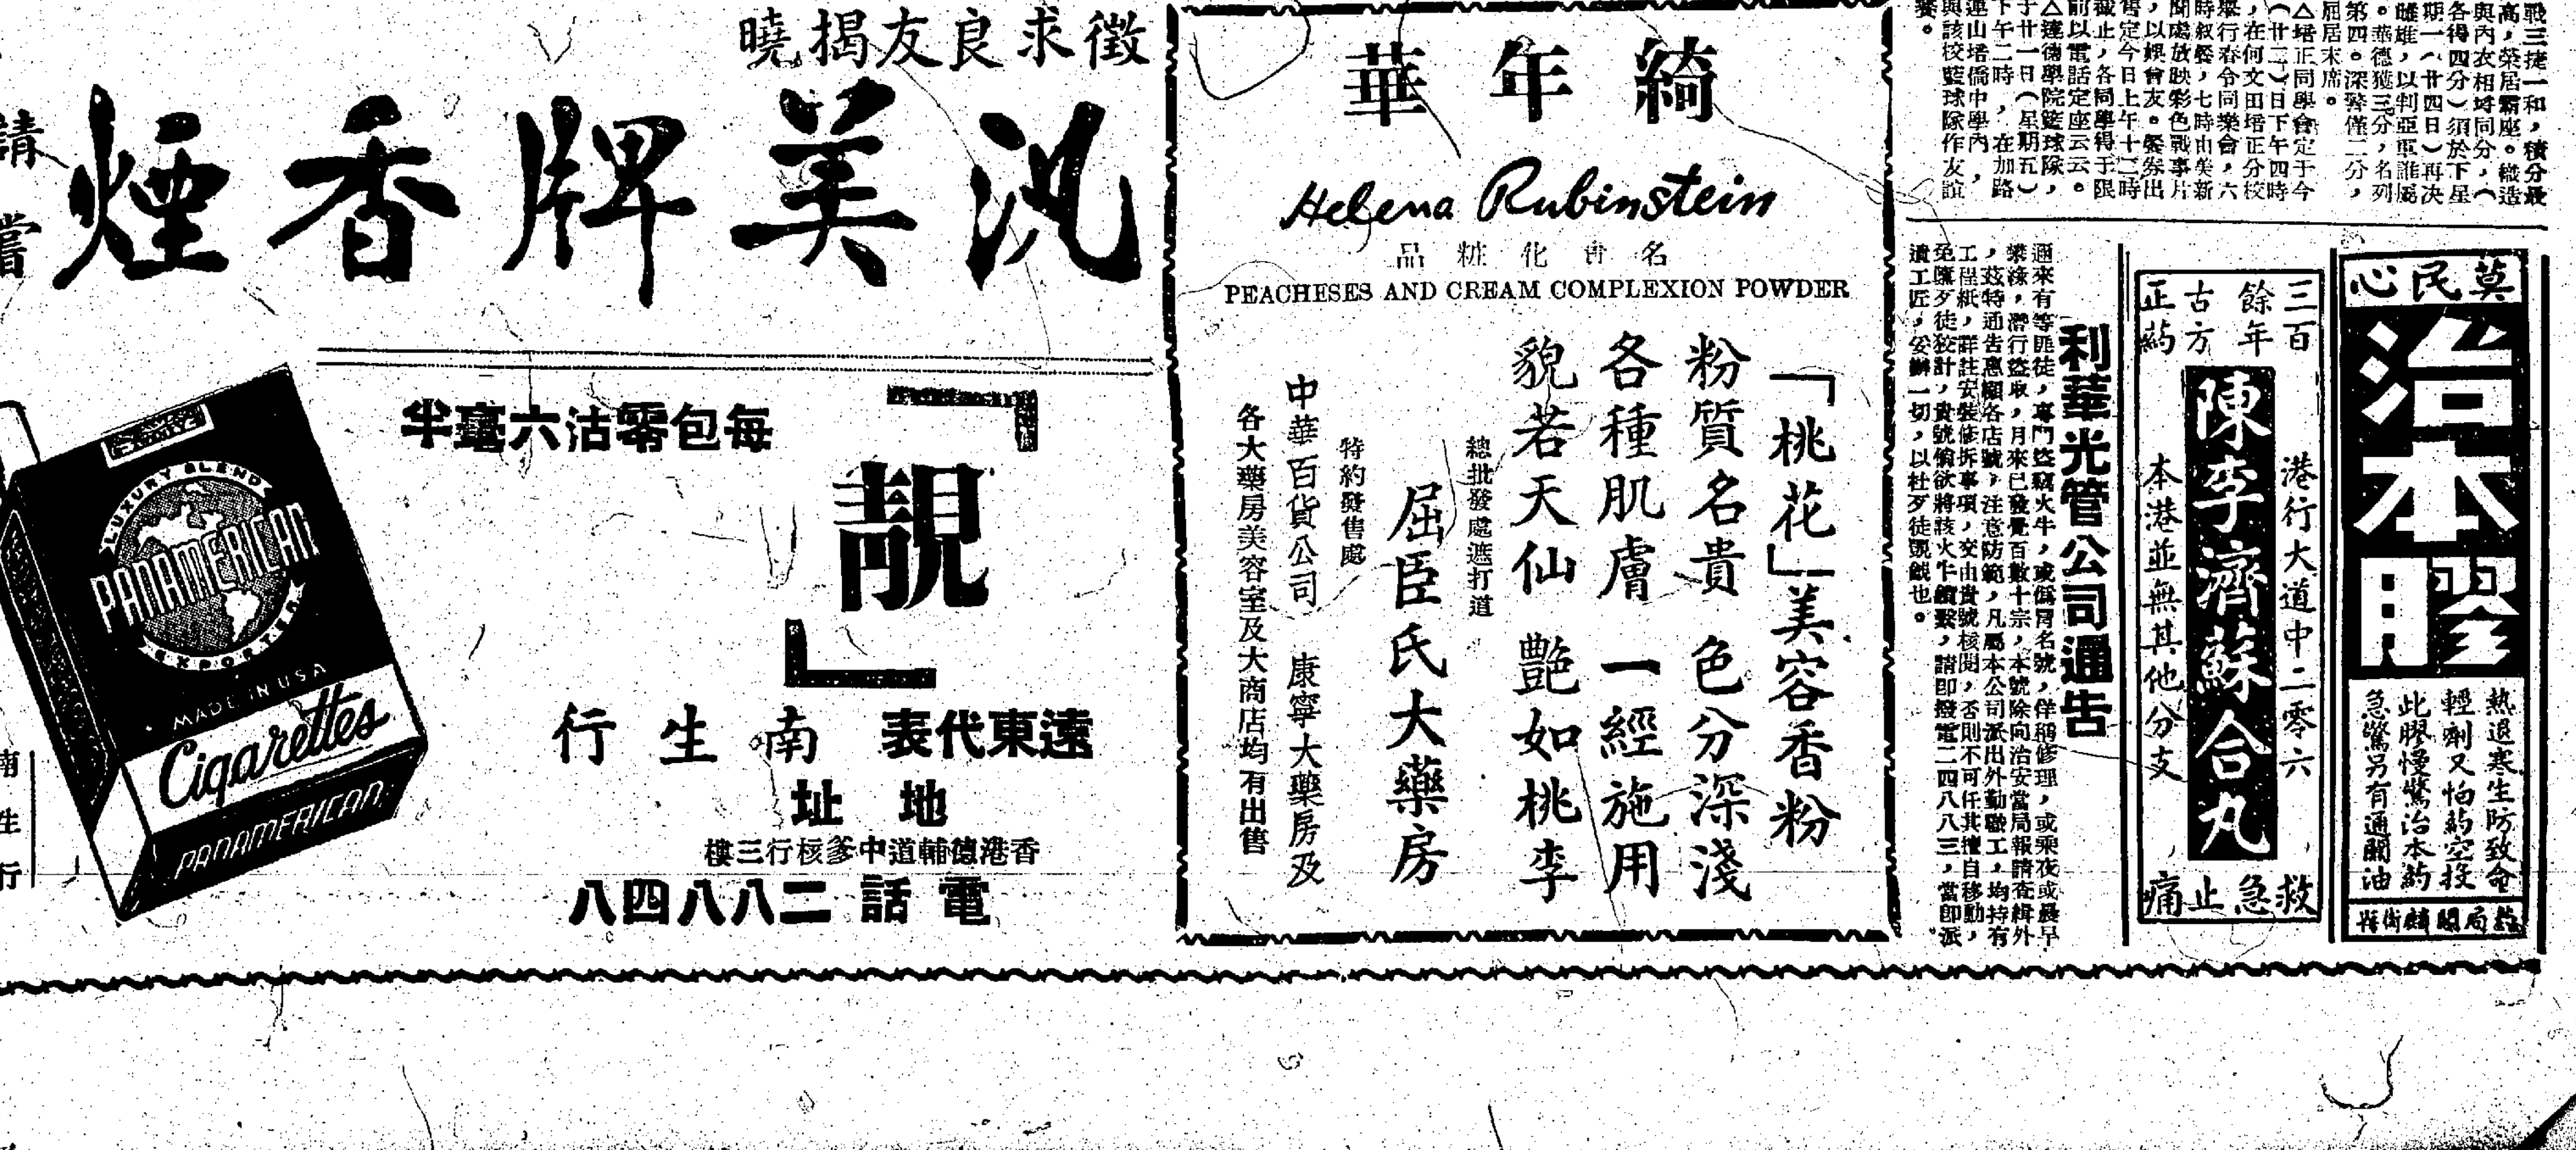 戰三捷一和，積分最
高，榮居霸座。織造
與內衣相埒同分，（
各得四分）須於下星
期一（廿四日）再决
雌雄，以判亞軍誰屬
。華德獲三分，名列
第四。深弊僅二分，
屈居末席。
△培正同學會定于今
（廿二）日下午四時
，在何文田培正分校
舉行春令同樂會，六
時叙餐，七時由美新
聞處放映彩色戰事片
，以娛會友。餐券出
售定今日上午十二時
截止，各同學得于限
前以電話定座云云。
△達德學院籃球隊，
于廿一日（星期五）
下午二時，在加路
連山培僑中學內，
與該校籃球隊作友誼
賽。
莫民心
治本膠
熱退寒生防致命
輕劑又怕葯空投
此膠慢驚治本葯
急驚另有通關油
三百餘年
古方正葯
港行大道中二零六
陳李濟蘇合丸
本港並無其他分支
救急止痛
利華光管公司通告
邇來有等匪徒，專門盜竊火牛，或僞冒名號，佯稱修理，或乘夜或晨早
業務，潛行盜取，月來已發覺百數十宗，本號除向治安當局報請查緝外
，茲特通告惠顧各店號，注意防範，凡屬本公司派出外勤職工，均持有
工程紙，詳註安裝修拆事項，交由貴號核閱，否則不可任其擅自移動，
免墮歹徒狡計，貴號倘欲將該火牛續繫，請即撥電二四八八三，當即派
遣工匠，妥辦一切，以杜歹徒覬覦也。
綺年華
Helena Rubinstein
名貴化粧品
PEACHESES AND CREAM COMPLEXION POWDER
「桃花」美容香粉
粉質名貴 色分深淺
各種肌膚 一經施用
貌若天仙 艷如桃李
總批發處遮打道
屈臣氏大藥房
特約發售處
中華百貨公司 康寧大藥房及
各大藥房美容室及大商店均有出售
徵求良友揭曉
汎美牌香煙
「靚」
每包零沽六毫半
遠東代表 南生行
地址
香港德輔道中爹核行三樓
電話二八八四八
LUXURY BLEND
PANAMERICAN
EXPORTED
MADE IN USA
Cigarettes
PANAMERICAN
請嘗
南生行